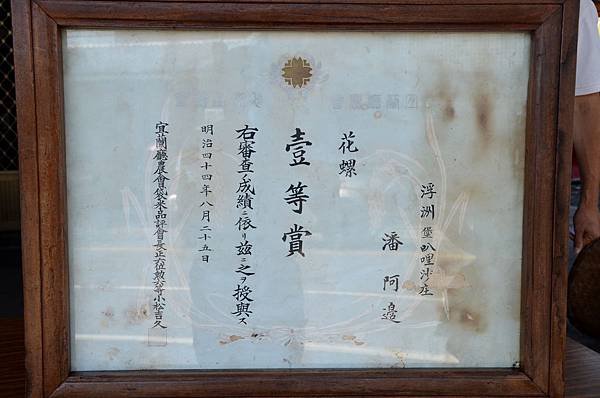 浮洲堡叭哩沙庄
潘阿邉
花螺
壹等賞
右審查ノ成績ニ依リ茲ニ之ヲ授與ス
明治四十四年八月二十五日
宜蘭廳農會袋米品評會長正六位勲六等小松吉久